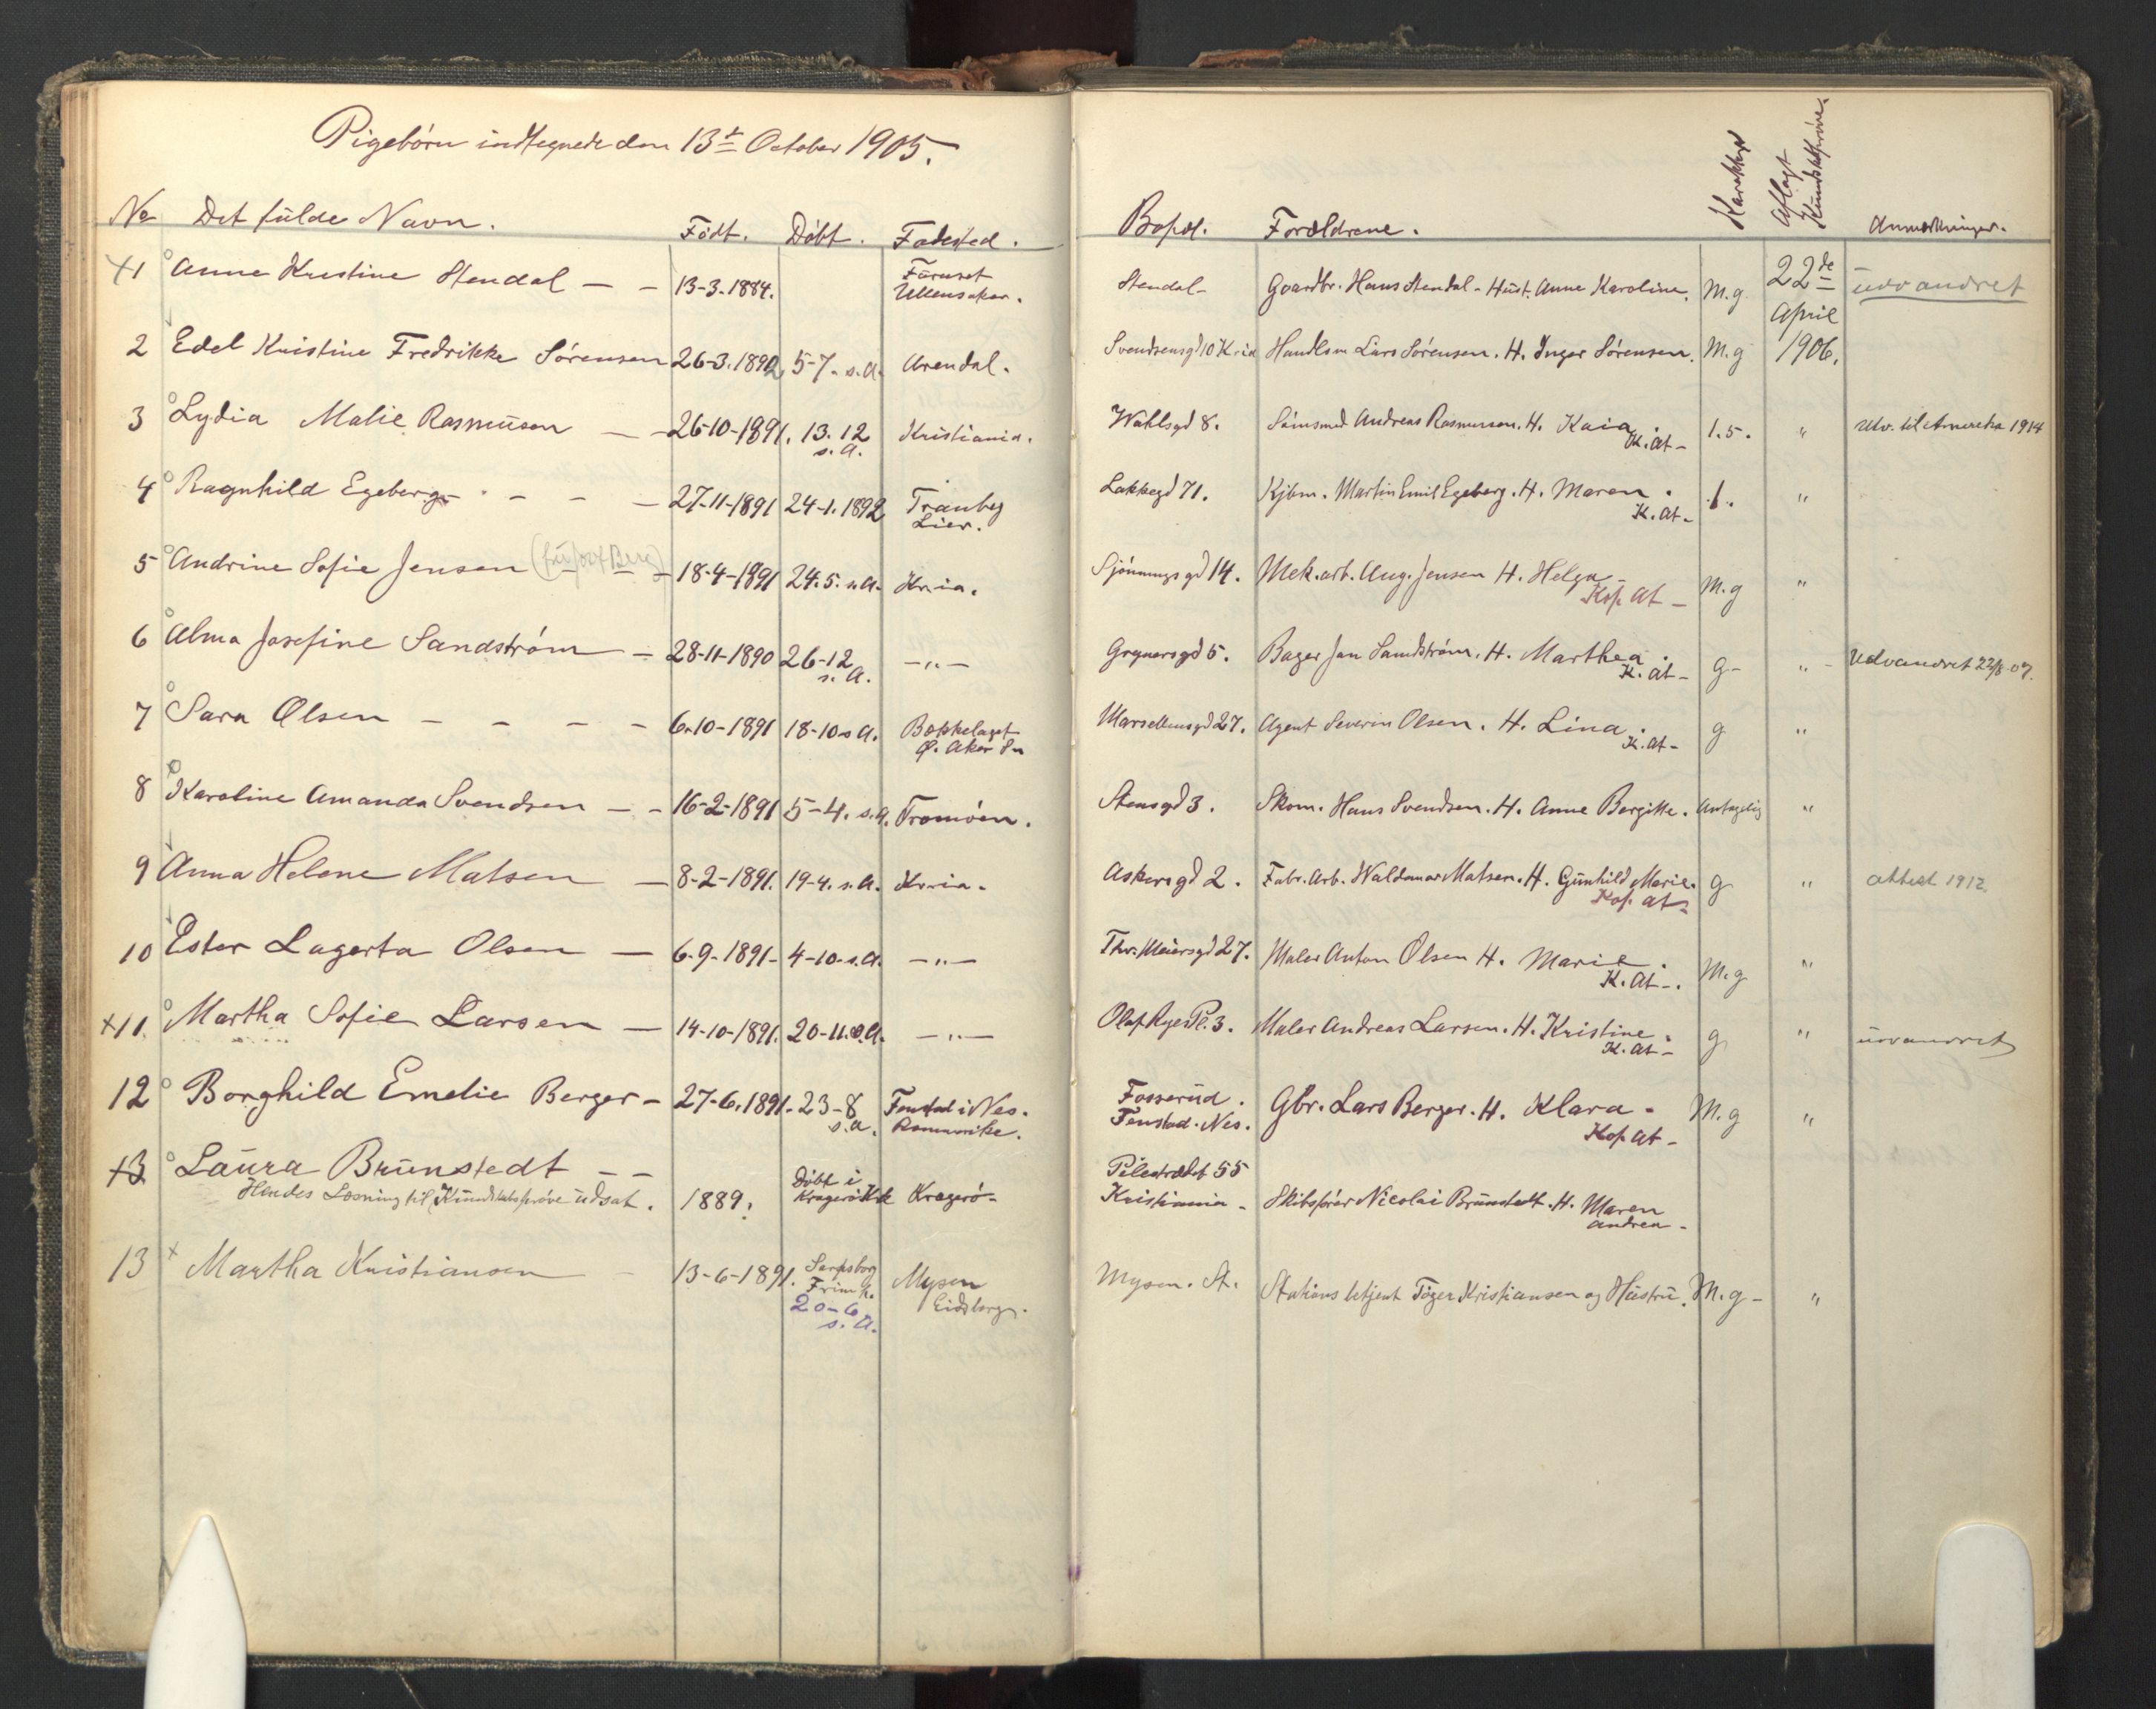 Pigebörn indtegnede den 13de October 1905.
No Det fulde Navn. Födt. Döbt. Födested. Bopæl. Forældrene. Karakter Aflagt Kundskabspröve. Anmærkninger.
+1 Anne Kristine Stendal — — 13-3.1884. Furuset Ullensaker. Stendal- Gaardbr. Hans Stendal - Hust. Anne Karoline. M.g 22de April 1906. udvandret
2 Edel Kristine Fredrikke Sörensen 26-3.1892 5-7. s.A. Arendal. Svendsensgd 10 Kria Handlsm Lars Sörensen. H. Inger Sörensen. M.g
3 Lydia Malie Rasmusen — 26-10-1891. 13.12 s.A. Kristiania. Wahlsgd 8. Andreas Rasmussen. H. Kaia. K.At- 1.5. " Udv. til Amerika 1914
4 Ragnhild Egeberg - - - — 27-11-1891 24-1.1892 Tranby Lier. Lakkegd 71. Kjbm. Martin Emil Egeberg. H. Maren. K.At- 1. "
5 Andrine Sofie Jensen 18-4-1891 24.5. s.A. Kr.ia. Sjömmingsgd 14. Mek.arb. Aug. Jensen H. Helga Kop At — M.g "
6 Alma Josefine Sandström — 28-11-1890 26-12 s.A. —"— Grynersgd 5. Bager Jan Sandström. H. Marthea. K.At- g- " Udvandret 22/8-07.
7 Sara Olsen - - - - 6-10-1891 18-10 s A. Bækkelaget Ö. Aker Sn Marsellensgd 27. Agent Severin Olsen. H. Lina. K.At- g "
8 Karoline Amanda Svendsen — - 16-2-1891 5-4. s.A. Tromöen. Stensgd 3. Skom. Hans Svendsen. H. Anne Bergitte. Antagelig "
9 Anna Helene Matsen — 8-2-1891. 19-4. s.A. Kr.ia. Askersgd 2. Fabr. Arb. Waldemar Matsen. H. Gunhild Marie. Kop. At- g " attest 1912.
10 Ester Lagerta Olsen — 6-9-1891- 4-10-s.A. —"— Thv. Meiersgd 27. Maler Anton Olsen H. Marie. K.At-. M.g "
+11. Martha Sofie Larsen — 14-10-1891. 20-11.s.A. —"— Olaf Ryes Pl. 3. Maler Andreas Larsen. H. Kristine. K.At- g " udvandret
12 Borghild Emelie Berger - 27-6.1891- 23-8 s.a. Fenstad i Nes. Romerike. Fosserud. Fenstad. Nes. Gbr. Lars Berger. H. Klara. Kop At- M.g "
13 Laura Brunstedt — —
Hendes Læsning til Kundskabspröve udsat. 1889. Döbt i Kragerö Kk Kragerö- Pilestrædet 55 Kristiania - Skibsförer Nicolai Brunstedt. H. Maren Andrea -
13 + Martha Kristiansen - 13-6-1891. Sarpsborg Frimk. 20-6 s.A. Mysen Eidsberg. Mysen. St. Stationsbetjent Töger Kristiansen og Hustru. M.g- "